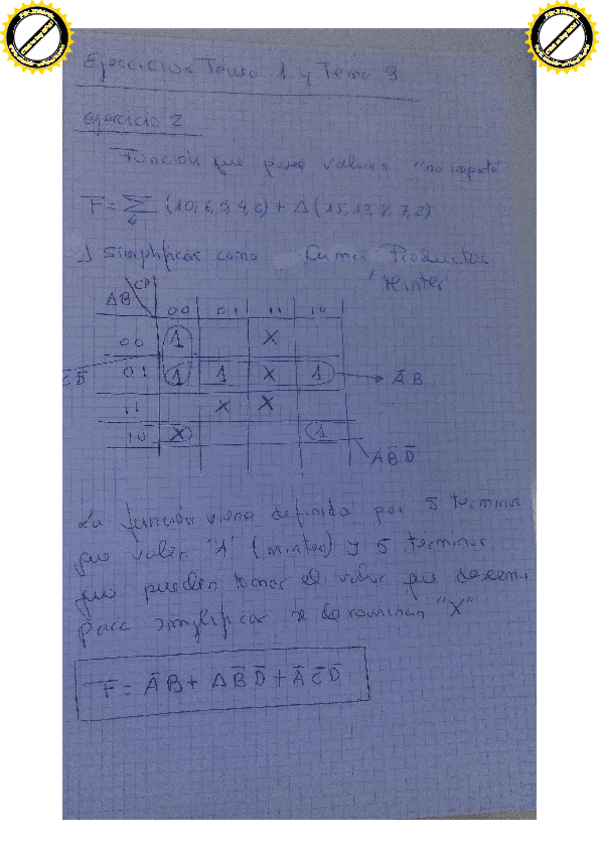 Ejercicios Tema 1 y Tema 3
ejercicio 2
Función que posee valores "no importa"
F = Σ (10, 6, 5, 4, 0) + Δ (15, 13, 8, 7, 3)
4
) Simplificar como Suma Productos
"Minter
AB CD 00 01 11 10
00 1 X
C̄D̄ 01 1 1 X 1 ĀB
11 X X
10 X 1
AB̄D̄
La función viene definida por 5 términos
que valen "1" (minter) y 5 términos
que pueden tomar el valor que
para simplificar se denominan "X"
F = ĀB + AB̄D̄ + ĀC̄D̄